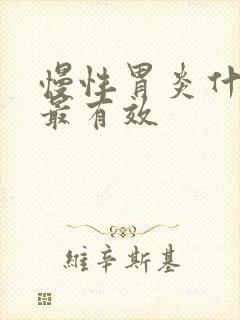 慢性胃炎什
最有效
維辛斯基